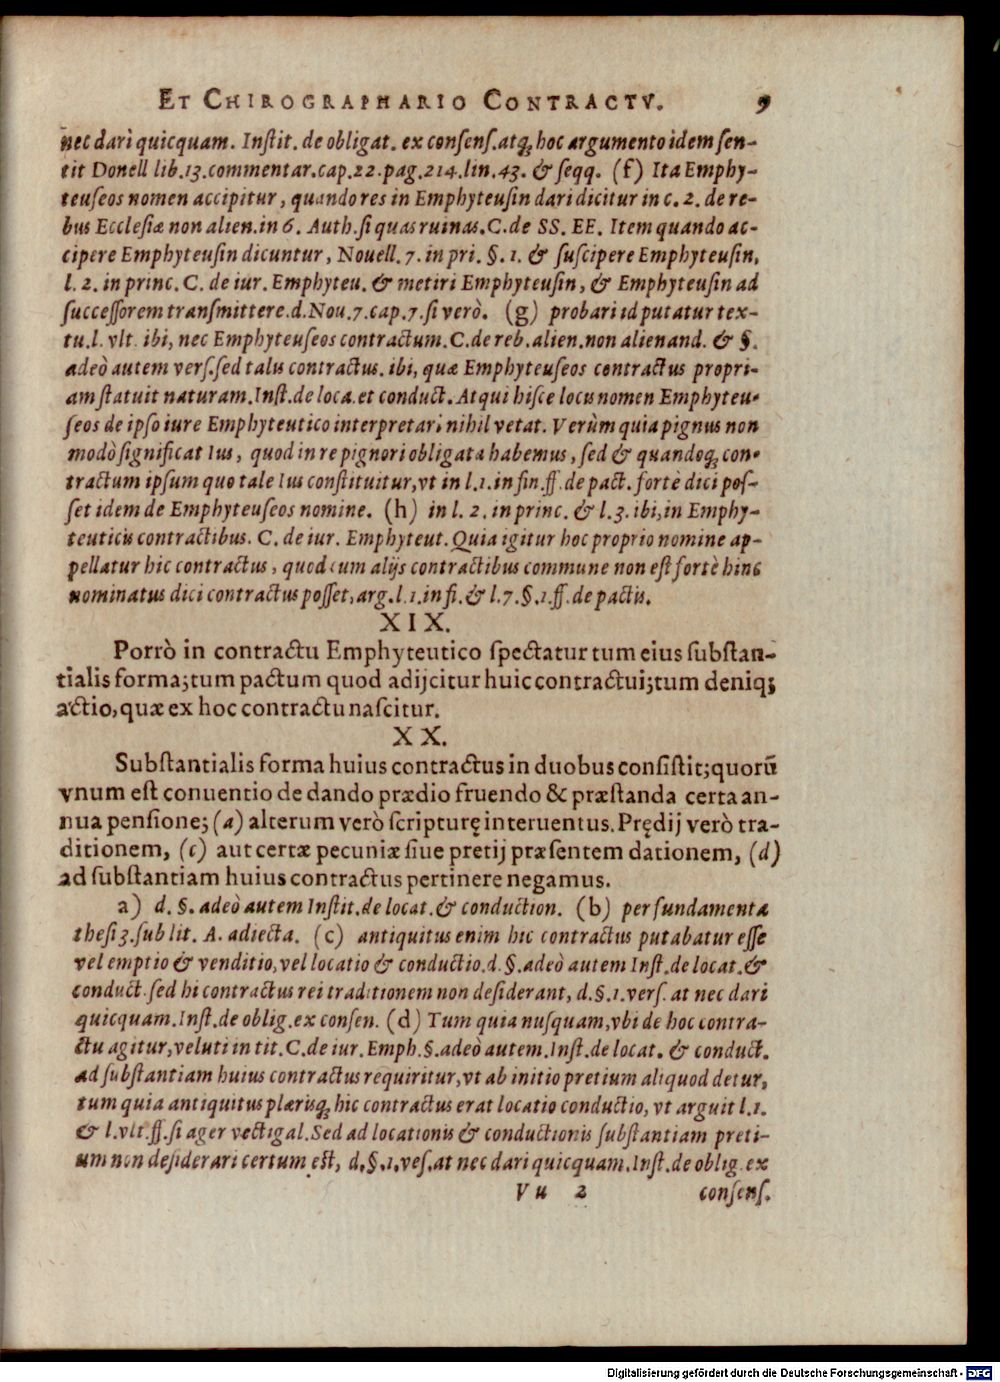 ET CHIROGRAPHARIO CONTRACTV. 9
nec dari quicquam. Inſtit. de obligat. ex conſenſ. atq; hoc argumento idem ſen-
tit Donell lib. 13. commentar. cap. 22. pag. 214. lin. 43. & ſeqq. (f) Ita Emphy-
teuſeos nomen accipitur, quando res in Emphyteuſin dari dicitur in c. 2. de re-
bus Eccleſiæ non alien. in 6. Auth. ſi quas ruinas. C. de SS. EE. Item quando ac-
cipere Emphyteuſin dicuntur, Nouell. 7. in pri. §. 1. & ſuſcipere Emphyteuſin,
l. 2. in princ. C. de iur. Emphyteu. & metiri Emphyteuſin, & Emphyteuſin ad
ſucceſſorem tranſmittere. d. Nou. 7. cap. 7. ſi verò. (g) probari id putatur tex-
tu. l. vlt. ibi, nec Emphyteuſeos contractum. C. de reb. alien. non alienand. & §.
adeò autem verſ. ſed talis contractus. ibi, quæ Emphyteuſeos contractus propri-
am ſtatuit naturam. Inſt. de loca. et conduct. Atqui hiſce locu nomen Emphyteu-
ſeos de ipſo iure Emphyteutico interpretari nihil vetat. Verùm quia pignus non
modò ſignificat Ius, quod in re pignori obligata habemus, ſed & quandoq; con-
tractum ipſum quo tale Ius conſtituitur, vt in l. 1. in fin. ff. de pact. fortè dici poſ-
ſet idem de Emphyteuſeos nomine. (h) in l. 2. in princ. & l. 3. ibi, in Emphy-
teuticis contractibus. C. de iur. Emphyteut. Quia igitur hoc proprio nomine ap-
pellatur hic contractus, quod cum alijs contractibus commune non eſt fortè hinc
nominatus dici contractus poſſet, arg. l. 1. in fi. & l. 7. §. 1. ff. de pactis.
XIX.
Porrò in contractu Emphyteutico ſpectatur tum eius ſubſtan-
tialis forma; tum pactum quod adijcitur huic contractui; tum deniq;
actio, quæ ex hoc contractu naſcitur.
XX.
Subſtantialis forma huius contractus in duobus conſiſtit; quorū
vnum eſt conuentio de dando prædio fruendo & præſtanda certa an-
nua penſione; (a) alterum verò ſcripturę interuentus. Prędij verò tra-
ditionem, (c) aut certæ pecuniæ ſiue pretij præſentem dationem, (d)
ad ſubſtantiam huius contractus pertinere negamus.
a) d. §. adeò autem Inſtit. de locat. & conduction. (b) per fundamenta
theſi 3. ſub lit. A. adiecta. (c) antiquitus enim hic contractus putabatur eſſe
vel emptio & venditio, vel locatio & conductio. d. §. adeò autem Inſt. de locat. &
conduct. ſed hi contractus rei traditionem non deſiderant, d. §. 1. verſ. at nec dari
quicquam. Inſt. de oblig. ex conſen. (d) Tum quia nuſquam, vbi de hoc contra-
ctu agitur, veluti in tit. C. de iur. Emph. §. adeò autem. Inſt. de locat. & conduct.
ad ſubſtantiam huius contractus requiritur, vt ab initio pretium aliquod detur,
tum quia antiquitus plærisq; hic contractus erat locatio conductio, vt arguit l. 1.
& l. vlt. ff. ſi ager vectigal. Sed ad locationis & conductionis ſubſtantiam preti-
um non deſiderari certum eſt, d. §. 1. veſ. at nec dari quicquam. Inſt. de oblig. ex
Vu 2 conſenſ.
Digitalisierung gefördert durch die Deutsche Forschungsgemeinschaft - DFG